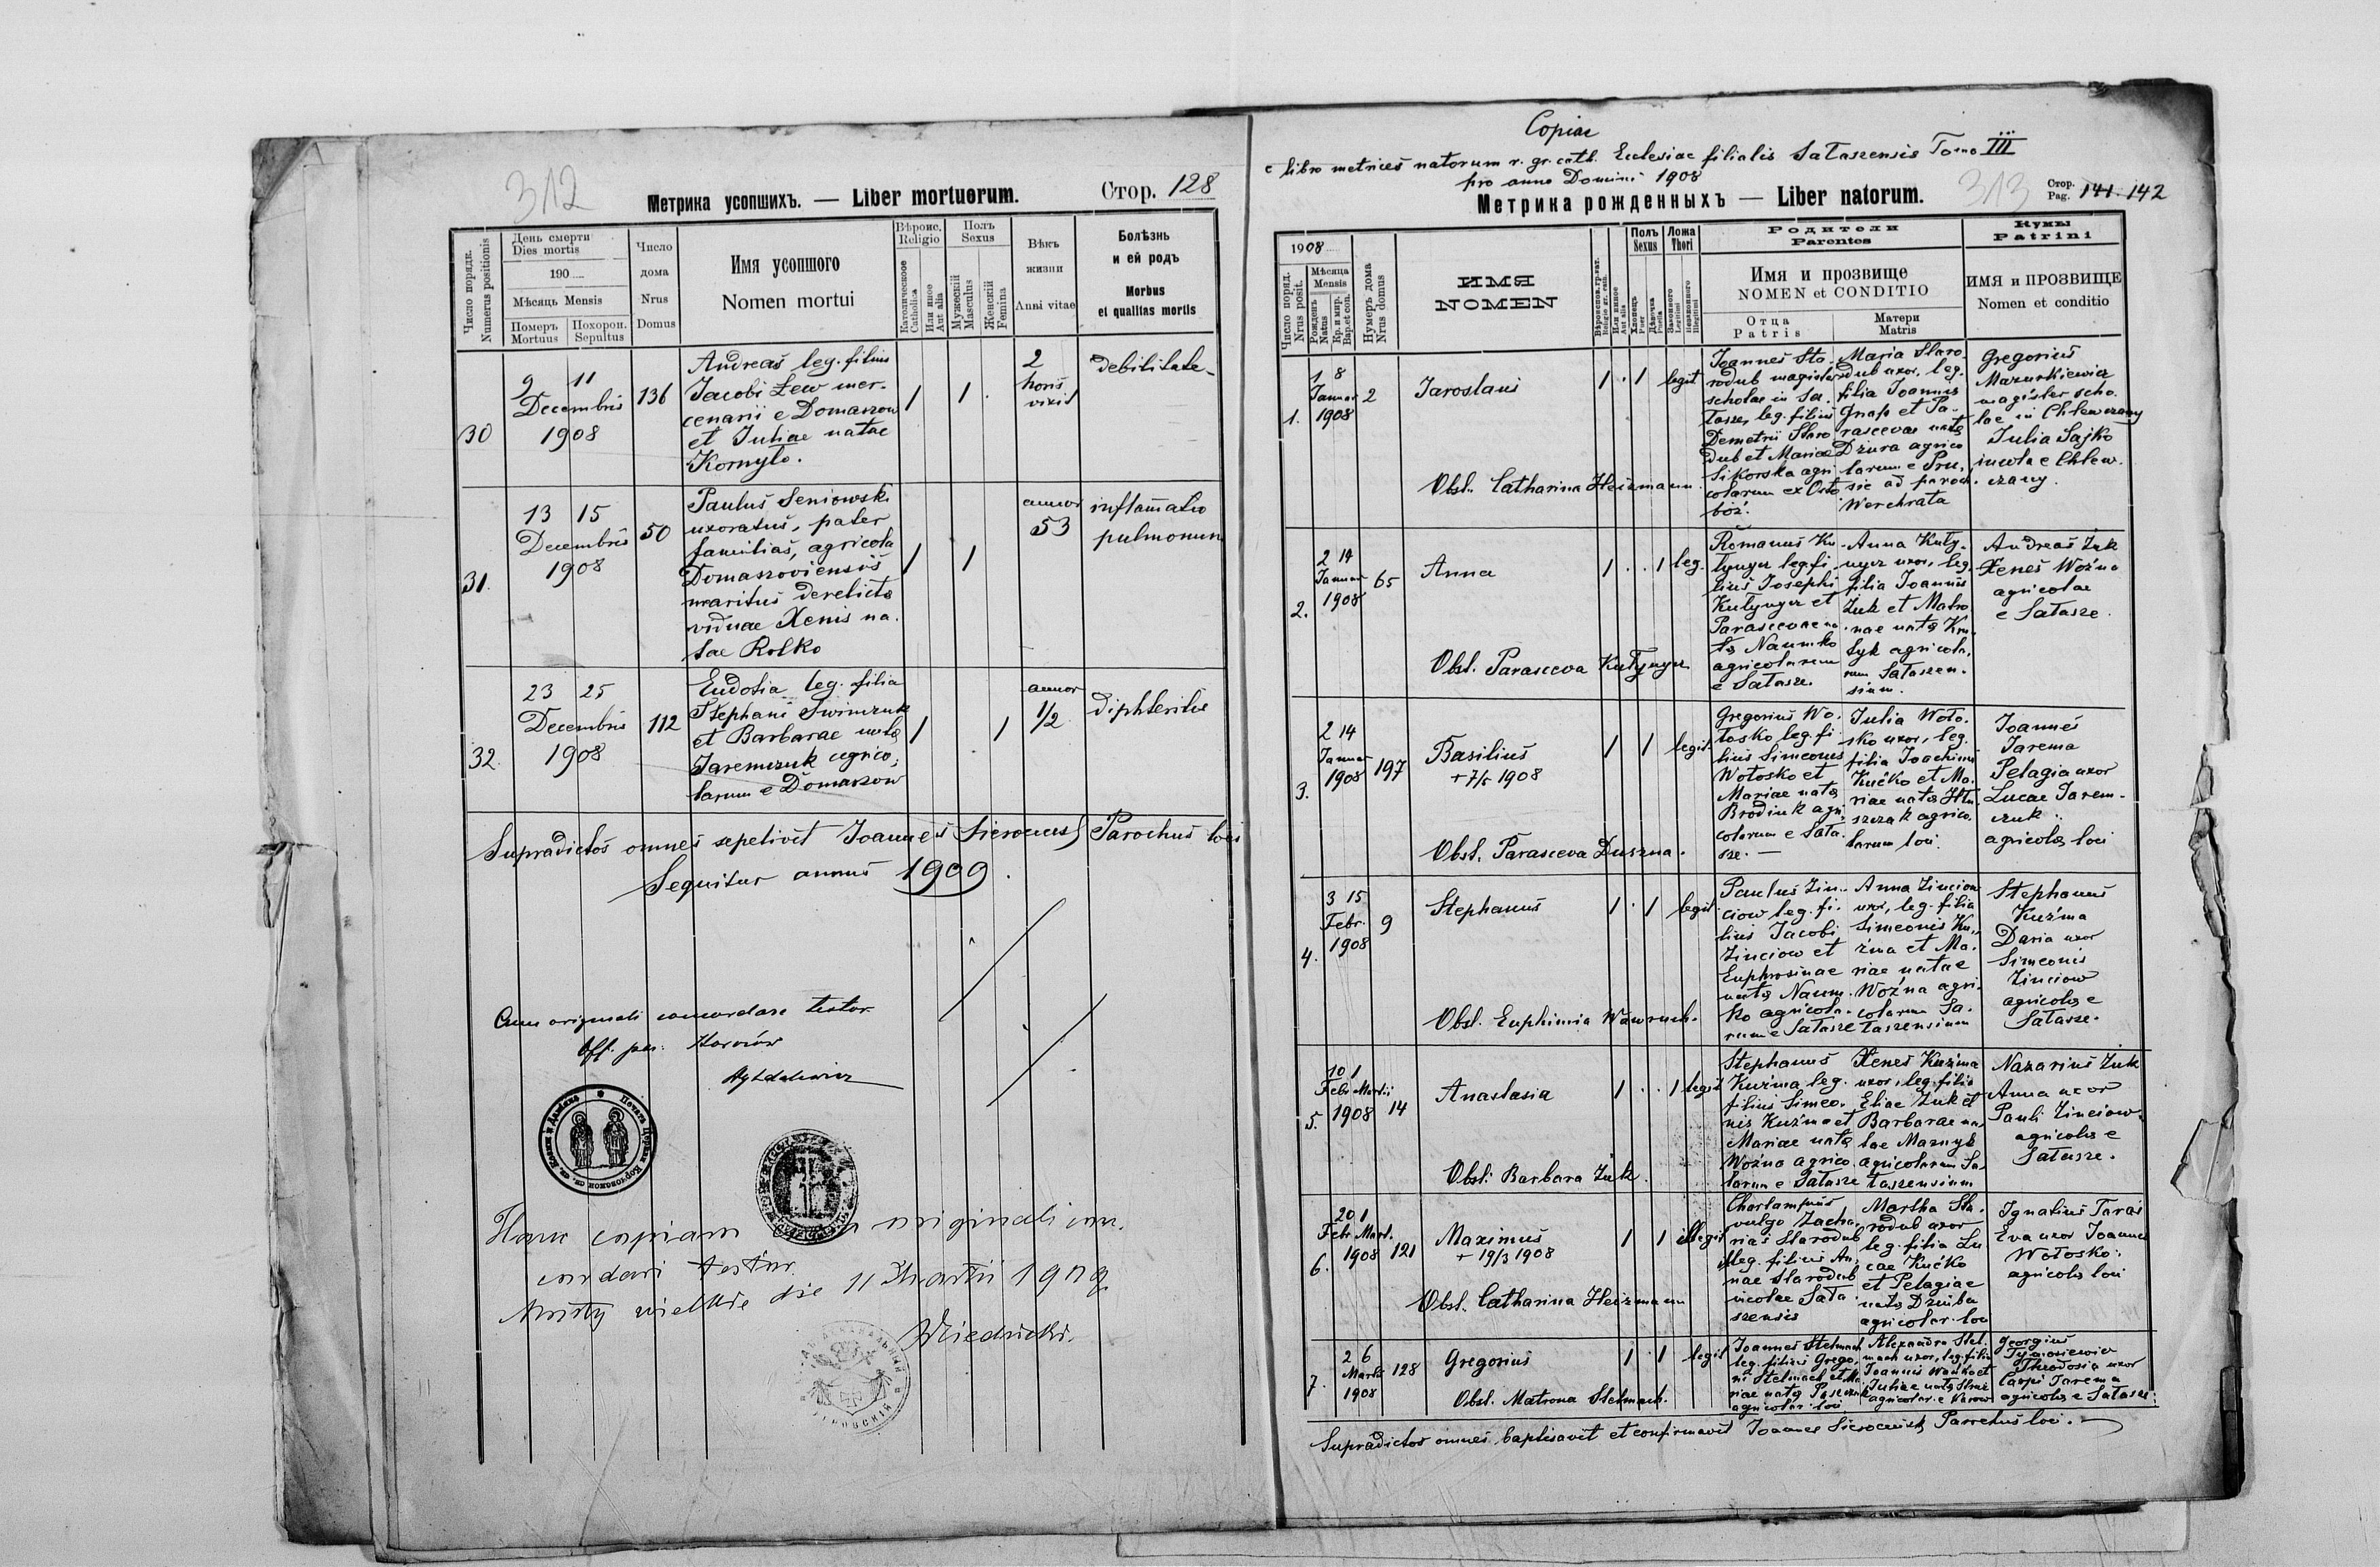 312
Метрика усопшихъ. — Liber mortuorum.
Стор. 128
Число порядк.
Numerus positionis
День смерти
Dies mortis
190
Мѣсяць Mensis
Померъ
Mortuus
Похорон.
Sepultus
Число
дома
Nrus
Domus
Имя усопшого
Nomen mortui
Вѣроис.
Religio
Католическое
Catholica
Или иное
Aut alia
Полъ
Sexus
Мужескій
Masculus
Женскій
Femina
Вѣкъ
жизни
Anni vitae
Болѣзнь
и ей родъ
Morbus
et qualitas mortis
30
9 11
Decembris
1908
136
Andreas leg. filius
Jacobi Lew mer-
cenarii e Domaszow
et Juliae natae
Kornyło.
1
1
2
horis
vixit
debilitate
31.
13 15
Decembris
1908
50
Paulus Seniowski
uxoratus, pater
familias, agricola
Domaszoviensis
maritus derelicta
viduae Xenis na-
tae Rolko
1
1
annor
53
inflamatio
pulmonum
32.
23 25
Decembris
1908
112
Eudosia leg. filia
Stephani Swinczuk
et Barbarae nata
Jaremczuk agrico-
larum e Domaszow
1
1
annor
1/2
diphteritis
Supradictos omnes sepelivit Joannes Parochus loci
Sequitur annus 1909.
Cum originali concordare testor
Off. par.
Hanc copiam originali con-
cordari testor
Mosty wielkie die 11 Martii 1909
Copiae
e libro metrices natorum r. gr. cath. Ecclesiae filialis Sałaszensis Tomo III
pro anno Domini 1908
Метрика рожденныхъ — Liber natorum.
313
Стор.
Pag. 141. 142
1908
Число поряд.
Nrus posit.
Мѣсяца
Mensis
Рожденъ
Natus
Кр. и мир.
Bap. et con.
Нумеръ дома
Nrus domus
ИМЯ
NOMEN
Или иное
Aut alia
Полъ
Sexus
Хлопець
Puer
Дѣвочка
Puella
Ложа
Thori
Законного
Legitimi
Незаконного
Illegitimi
Родители
Parentes
Имя и прозвище
NOMEN et CONDITIO
Отца
Patris
Матери
Matris
Кумы
Patrini
ИМЯ и ПРОЗВИЩЕ
Nomen et conditio
1.
1 8
Januar
1908
2
Jaroslaus
1 . 1 legit
Joannes Sta-
rodub magister
scholae in Sa-
łasze, leg. filius
Demetrii Staro
dub et Mariae
Sikorska agri
colarum ex Osto
bóż.
Maria Staro-
dub uxor, leg.
filia Joannis
Gnap et Pa-
rascevae nata
Dziura agrico
larum e Pru-
sie ad paroch.
Werchrata
Gregorius
Mazurkiewicz
magister scho-
lae in Chlewczany
Julia Sajko
incola e Chlew-
czany.
Obst. Catharina Heizmann.
2.
2 14
Januar
1908
65
Anna
1 . . 1 leg.
Romanus Ku-
łynycz leg. fi-
lius Josephi
Kułynycz et
Parascevae na-
ta Naumko
agricolarum
e Sałasze.
Anna Kuły-
nycz uxor, leg.
filia Joannis
Żuk et Matro
nae nata Kru-
tyk agricola-
rum Sałaszen-
sium.
Andreas Żuk
Xenes Woźna
agricolae
e Sałasze.
Obst. Parasceva Kułynycz
3.
2 14
Januar
1908
197
Basilius
+ 7/5 1908
1 1 legit
Gregorius Wo-
łosko leg. fi-
lius Simeonis
Wołosko et
Mariae nata
Brodiuk agri-
colarum e Sała-
sze. —
Julia Woło-
sko uxor, leg.
filia Joachimi
Kućko et Ma-
riae nata
agrico-
larum loci.
Joannes
Jarema
Pelagia uxor
Lucae Jarem-
czuk
agricola loci
Obst. Parasceva Duszna.
4.
3 15
Febr.
1908
9
Stephanus
1 . 1 legit.
Paulus Zin-
ciow leg. fi-
lius Jacobi
Zinciow et
Euphrosinae
nata Naum-
ko agricola-
rum e Sałasze
Anna Zinciow
uxor, leg. filia
Simeonis Ku-
źma et Ma-
riae natae
Woźna agri-
colarum Sa-
łaszensium
Stephanus
Kuźma
Daria uxor
Simeonis
Zinciow
agricola e
Sałasze.
Obst. Euphimia Wawruch.
5.
10 1
Febr Martii
1908
14
Anastasia
1 . . 1 legit
Stephanus
Kuźma leg.
filius Simeo-
nis Kuźma et
Mariae nata
Woźna agrico-
larum e Sałasze
Xenes Kuźma
uxor, leg. filia
Eliae Żuk et
Barbarae na-
tae Maznyk
agricolarum Sa-
łaszensium
Nazarius Żuk
Anna uxor
Pauli Zinciow
agricola e
Sałasze.
Obst. Barbara Żuk.
6.
20 1
Febr Mart.
1908
121
Maximus
+ 19/3 1908
1 1 illegit
Charlampius
vulgo Zacha-
rias Starodub
illeg. filius An-
nae Starodub
incolae Sała-
szensis
Martha Sta-
rodub uxor
leg. filia Lu
cae Kućko
et Pelagiae
nata Dziuba
agricolar. loci
Ignatius Taras
Eva uxor Joannis
Wołosko
agricola loci
Obst. Catharina Heizmann
7.
2 6
Martii
1908
128
Gregorius
1 1 legit
Joannes Stelmach
leg. filius Grego-
rii Stelmach et Ma-
riae nata
agricolar. loci
Alexandra Stel-
mach uxor, leg. filia
Joannis et
Juliae nata
agricolar. e
Georgius
Tymosiewicz
Theodosia uxor
Carpi Jarema
agricola e Sałasze.
Obst. Matrona Stelmach.
Supradictos omnes baptisavit et confirmavit Joannes Parochus loci.